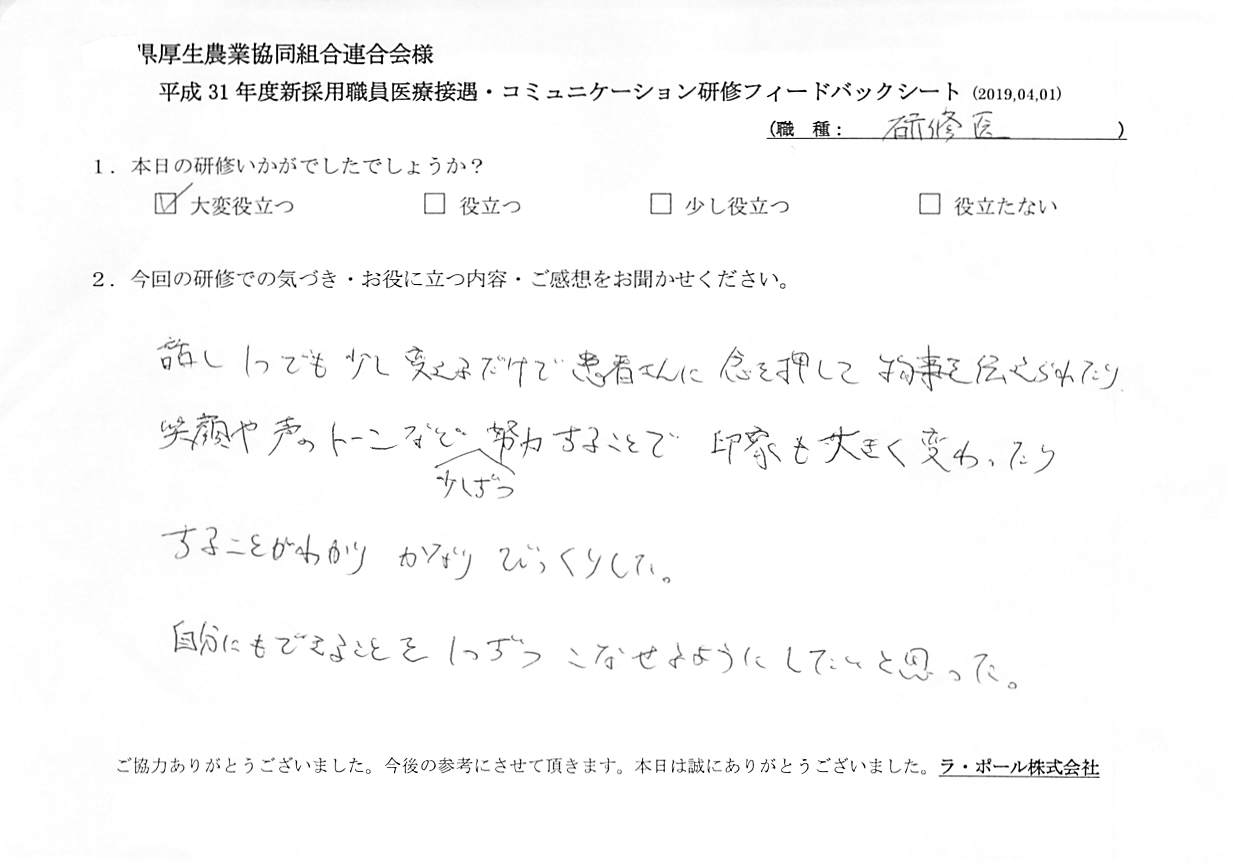 県厚生農業協同組合連合会様
平成 31 年度新採用職員医療接遇・コミュニケーション研修フィードバックシート (2019,04,01)
(職　種： 研修医 )
１．本日の研修いかがでしたでしょうか？
☑ 大変役立つ　□ 役立つ　□ 少し役立つ　□ 役立たない
２．今回の研修での気づき・お役に立つ内容・ご感想をお聞かせください。
話し 1つでも 少し 変えるだけで 患者さんに 念を押して 物事を伝えられたり
笑顔や 声のトーンなどで 努力することで 印象も大きく変わったり
少しずつ
することがわかり かなり びっくりした。
自分にもできることを 1つずつ こなせるようにしたいと思った。
ご協力ありがとうございました。今後の参考にさせて頂きます。本日は誠にありがとうございました。ラ・ポール株式会社